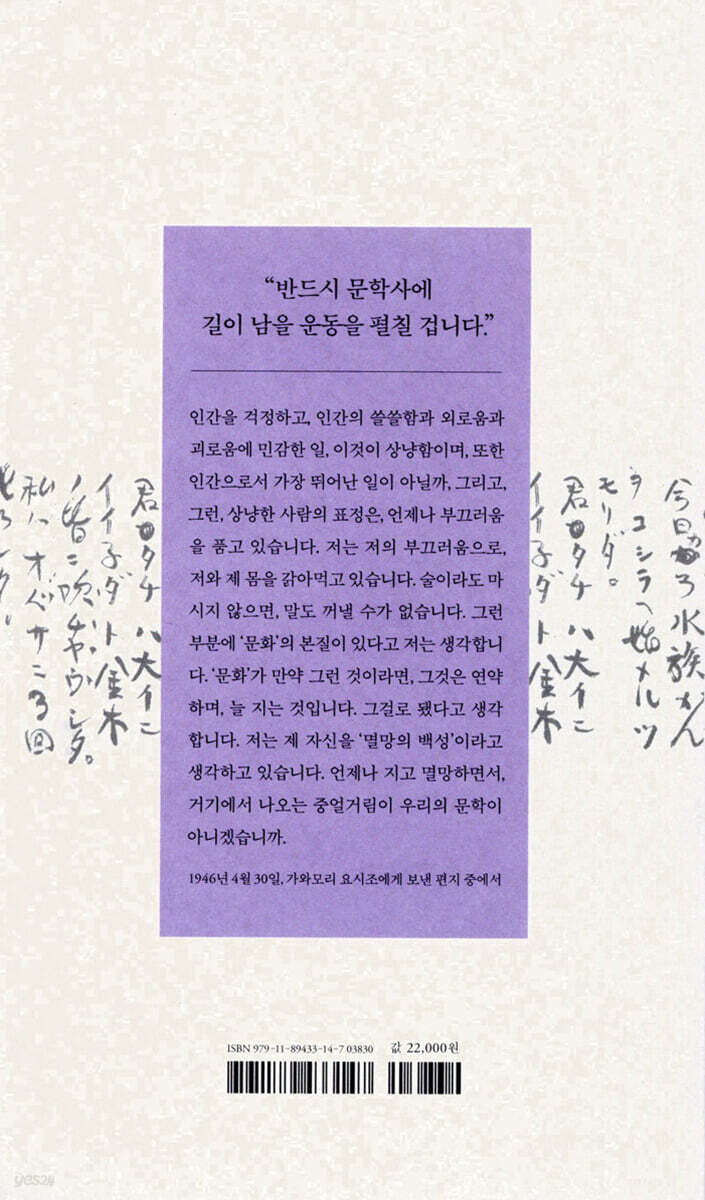 “반드시 문학사에
길이 남을 운동을 펼칠 겁니다.”
인간을 걱정하고, 인간의 쓸쓸함과 외로움과
괴로움에 민감한 일, 이것이 상냥함이며, 또한
인간으로서 가장 뛰어난 일이 아닐까, 그리고,
그런, 상냥한 사람의 표정은, 언제나 부끄러움
을 품고 있습니다. 저는 저의 부끄러움으로,
저와 제 몸을 갉아먹고 있습니다. 술이라도 마
시지 않으면, 말도 꺼낼 수가 없습니다. 그런
부분에 ‘문화’의 본질이 있다고 저는 생각합니
다. ‘문화’가 만약 그런 것이라면, 그것은 연약
하며, 늘 지는 것입니다. 그걸로 됐다고 생각
합니다. 저는 제 자신을 ‘멸망의 백성’이라고
생각하고 있습니다. 언제나 지고 멸망하면서,
거기에서 나오는 중얼거림이 우리의 문학이
아니겠습니까.
1946년 4월 30일, 가와모리 요시조에게 보낸 편지 중에서
今日 水族カン
モリダ。
君タチ 八大イニ
イイ子ダト 金木
私ハオバサニ3回
君タチ 八大イニ
イイ子ダト 金木
ISBN 979-11-89433-14-7 03830 값 22,000원
yes24